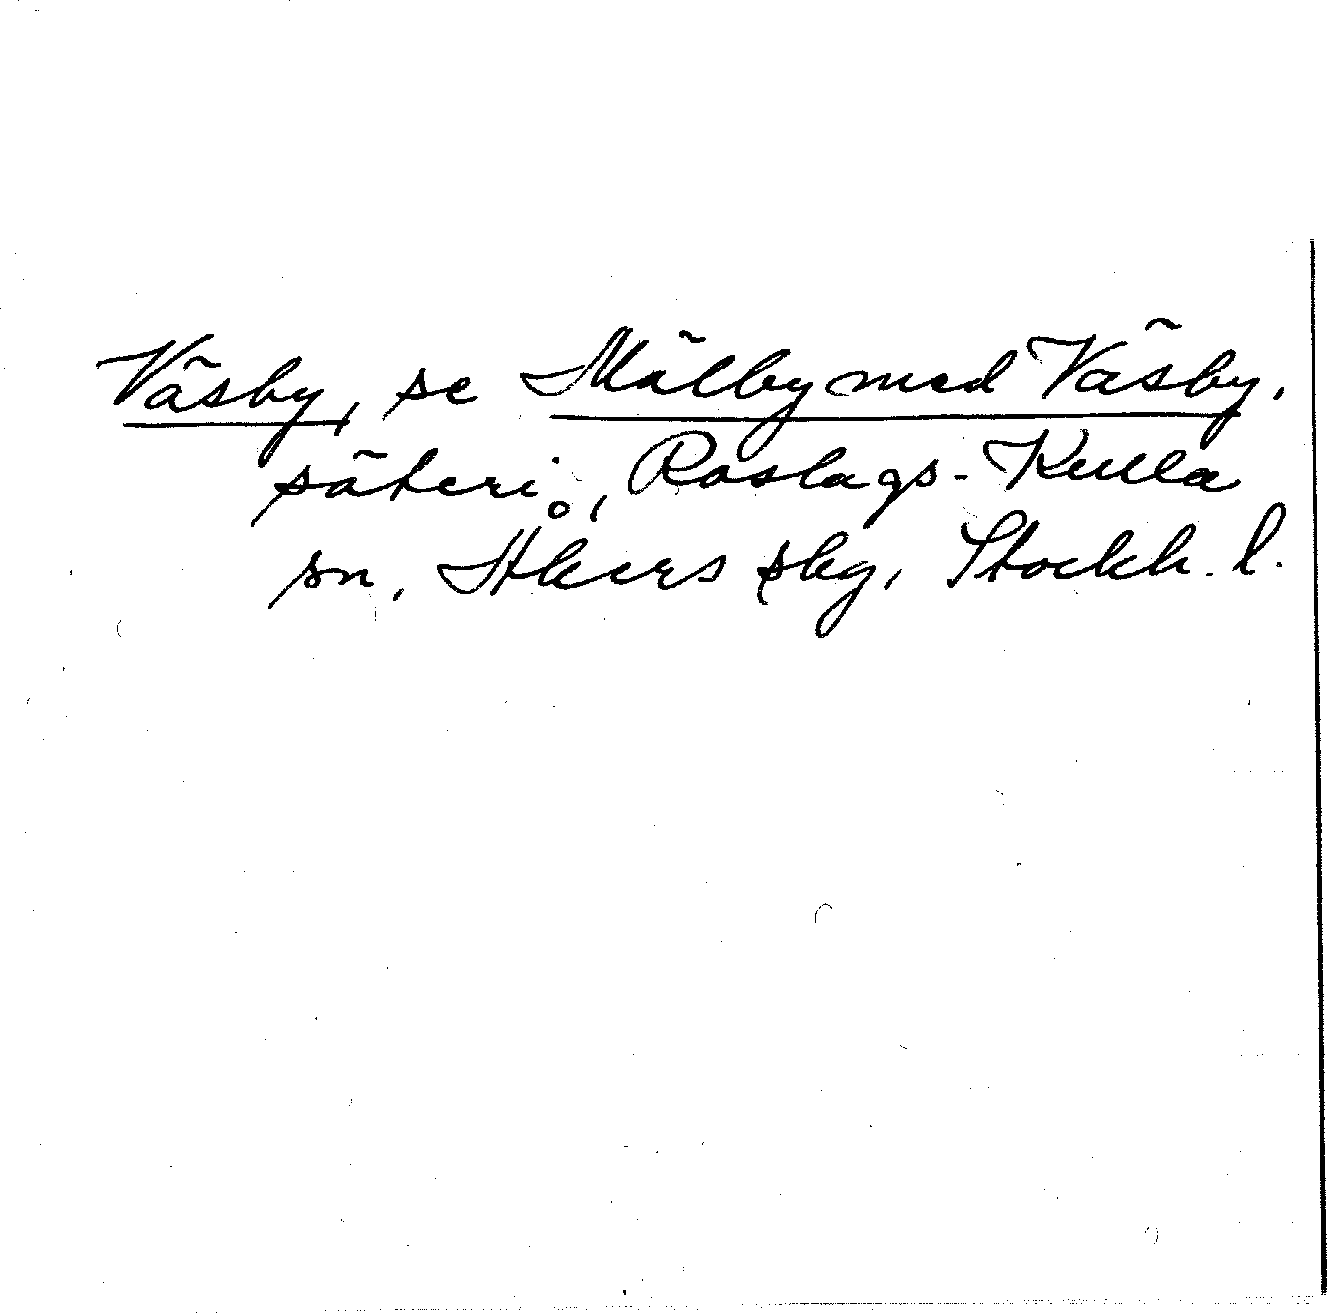 Väsby, se Mälby med Väsby,
säteri, Roslags-Kulla
sn, Åkers skg, Stockh. l.